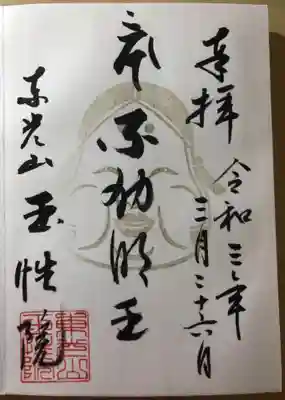 奉拝
令和三年
三月二十六日
不動明王
東光山
玉性院